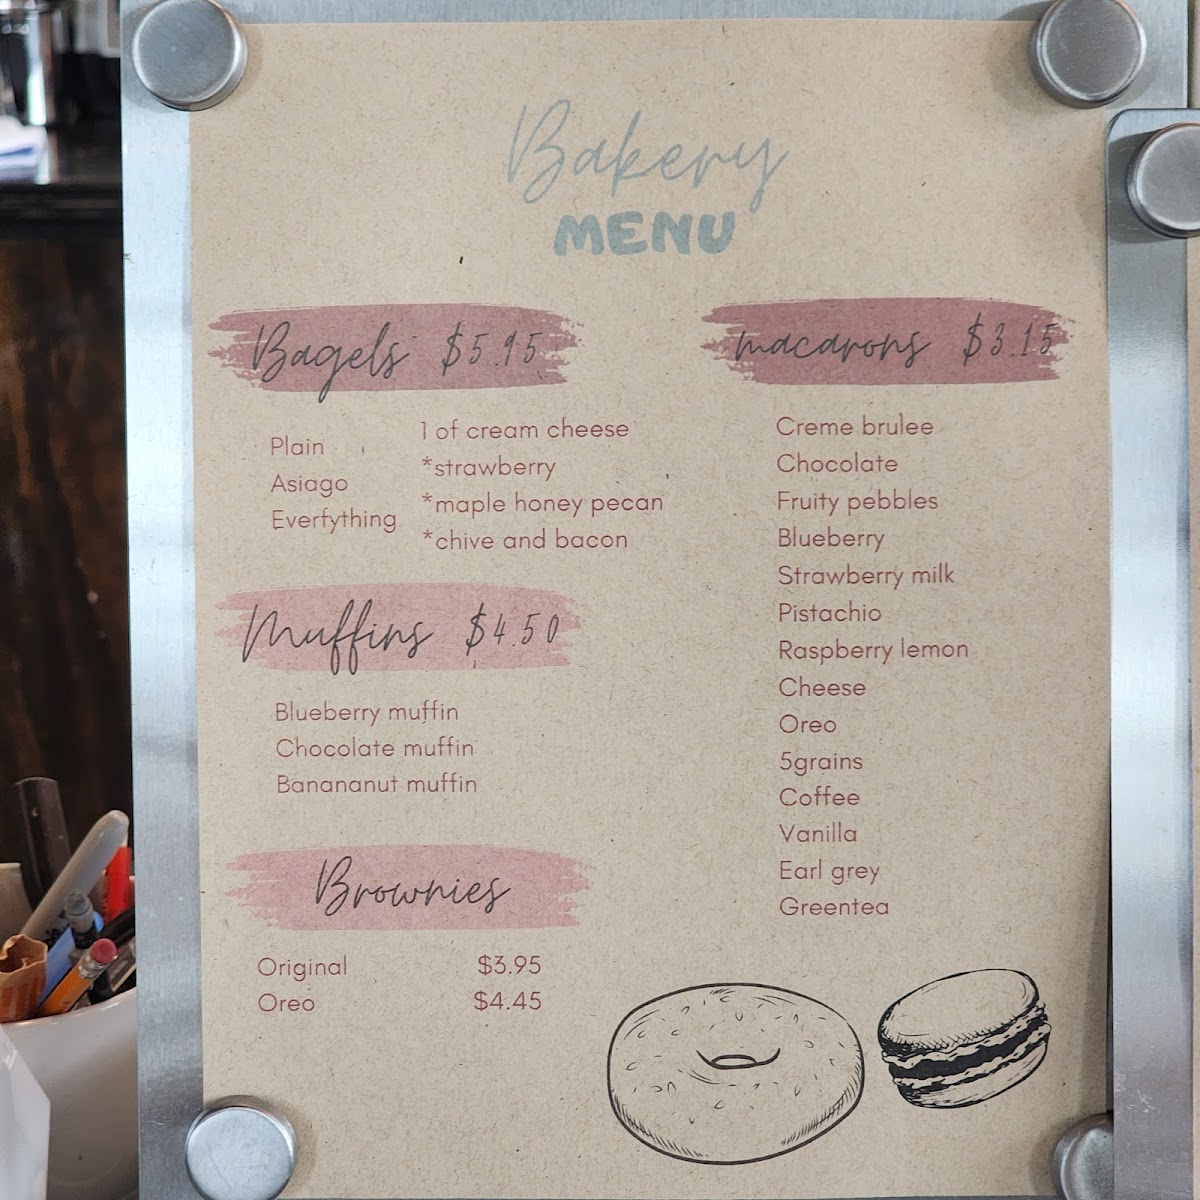 Bakery
MENU
Bagels $5.95
Plain
Asiago
Everfything
1 of cream cheese
*strawberry
*maple honey pecan
*chive and bacon
Muffins $4.50
Blueberry muffin
Chocolate muffin
Banananut muffin
Brownies
Original $3.95
Oreo $4.45
macarons $3.15
Creme brulee
Chocolate
Fruity pebbles
Blueberry
Strawberry milk
Pistachio
Raspberry lemon
Cheese
Oreo
5grains
Coffee
Vanilla
Earl grey
Greentea